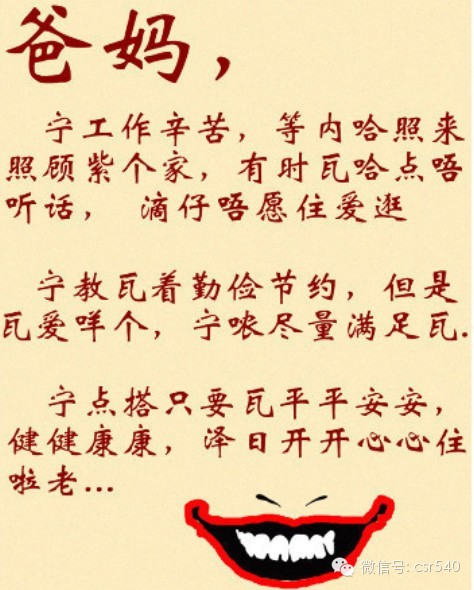 爸妈，
宁工作辛苦，等内哈照来
照顾紫个家，有时瓦哈点唔
听话， 滴仔唔愿住爱逛
宁教瓦着勤俭节约，但是
瓦爱咩个，宁哝尽量满足瓦.
宁点搭只要瓦平平安安，
健健康康，泽日开开心心住
啦老...
微信号: csr540